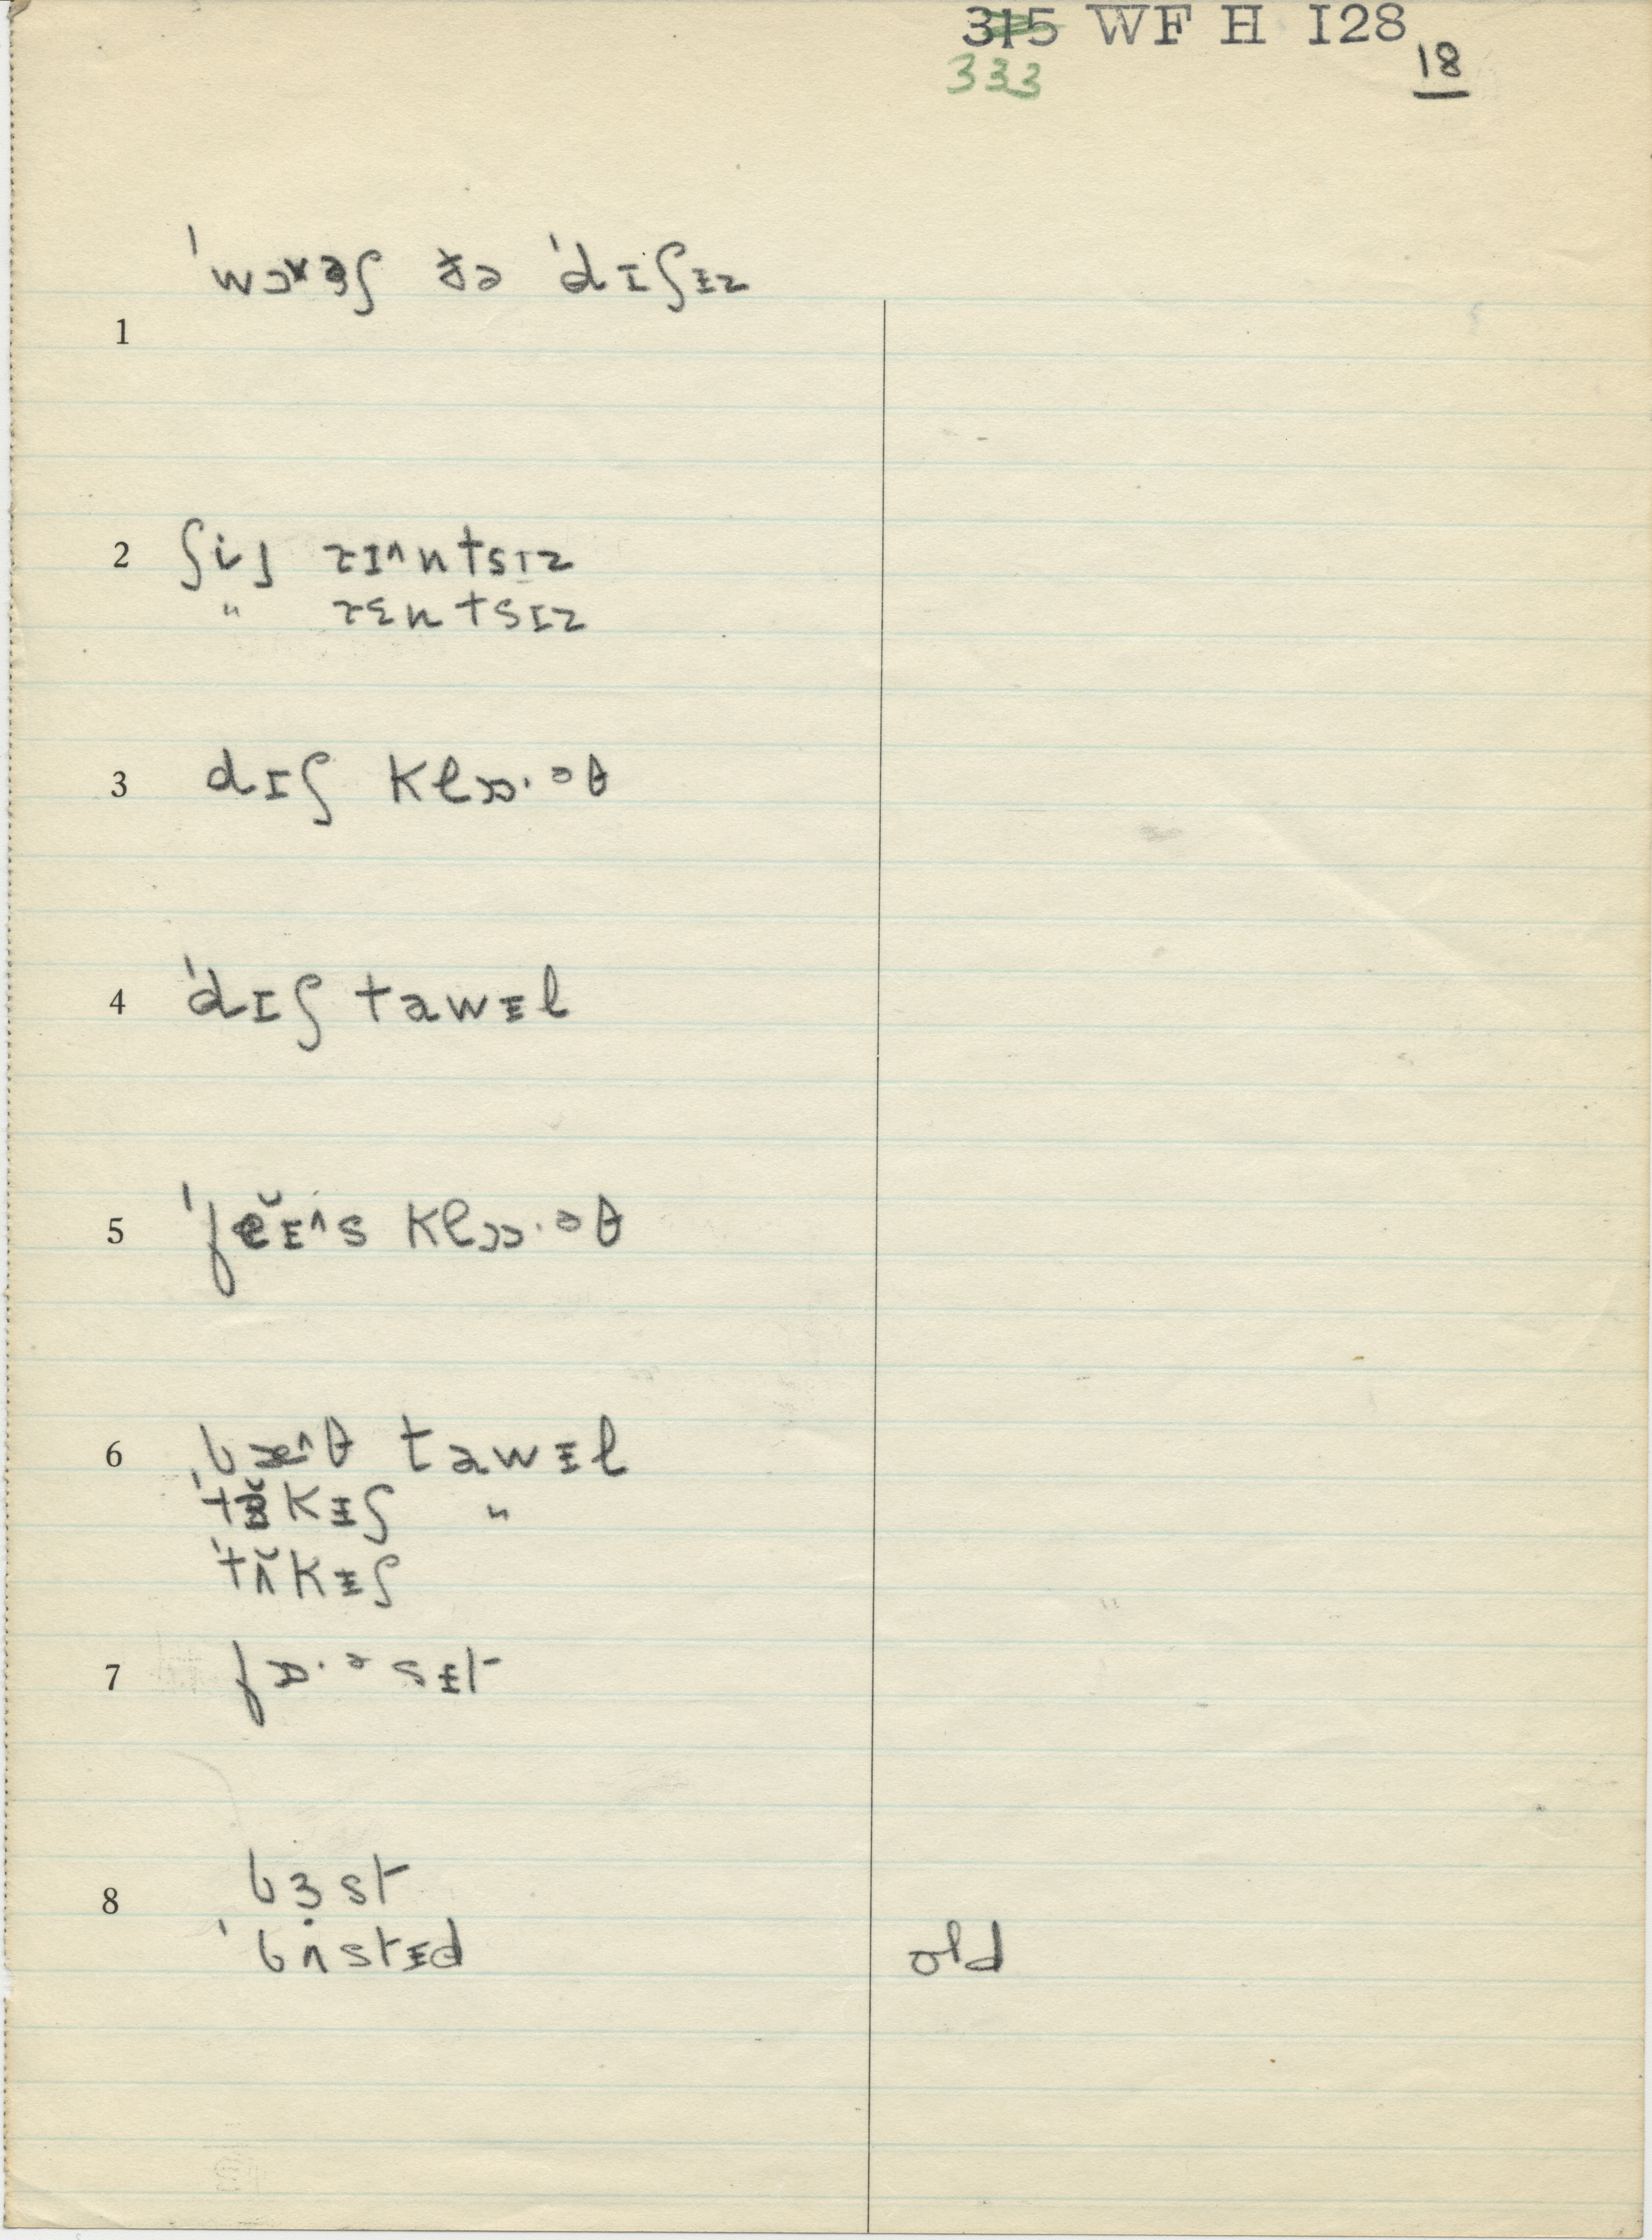 315 WF H I28
333
18
1 ˈwɔɤɚʃ ðə ˈdɪʃɨz
2 ʃiʲ ɹɪ^ntsɪz
" ɹɛntsɪz
3 dɪʃ klɒɒ·əθ
4 ˈdɪʃ tawɨl
5 ˈfĕɨ^s klɒɒ·əθ
6 bæ^θ tawɨl
kɨʃ "
ˈtʌ̆kɨʃ
7 fɒ·əsɨt
8 bɜst
ˈbʌstɨd old